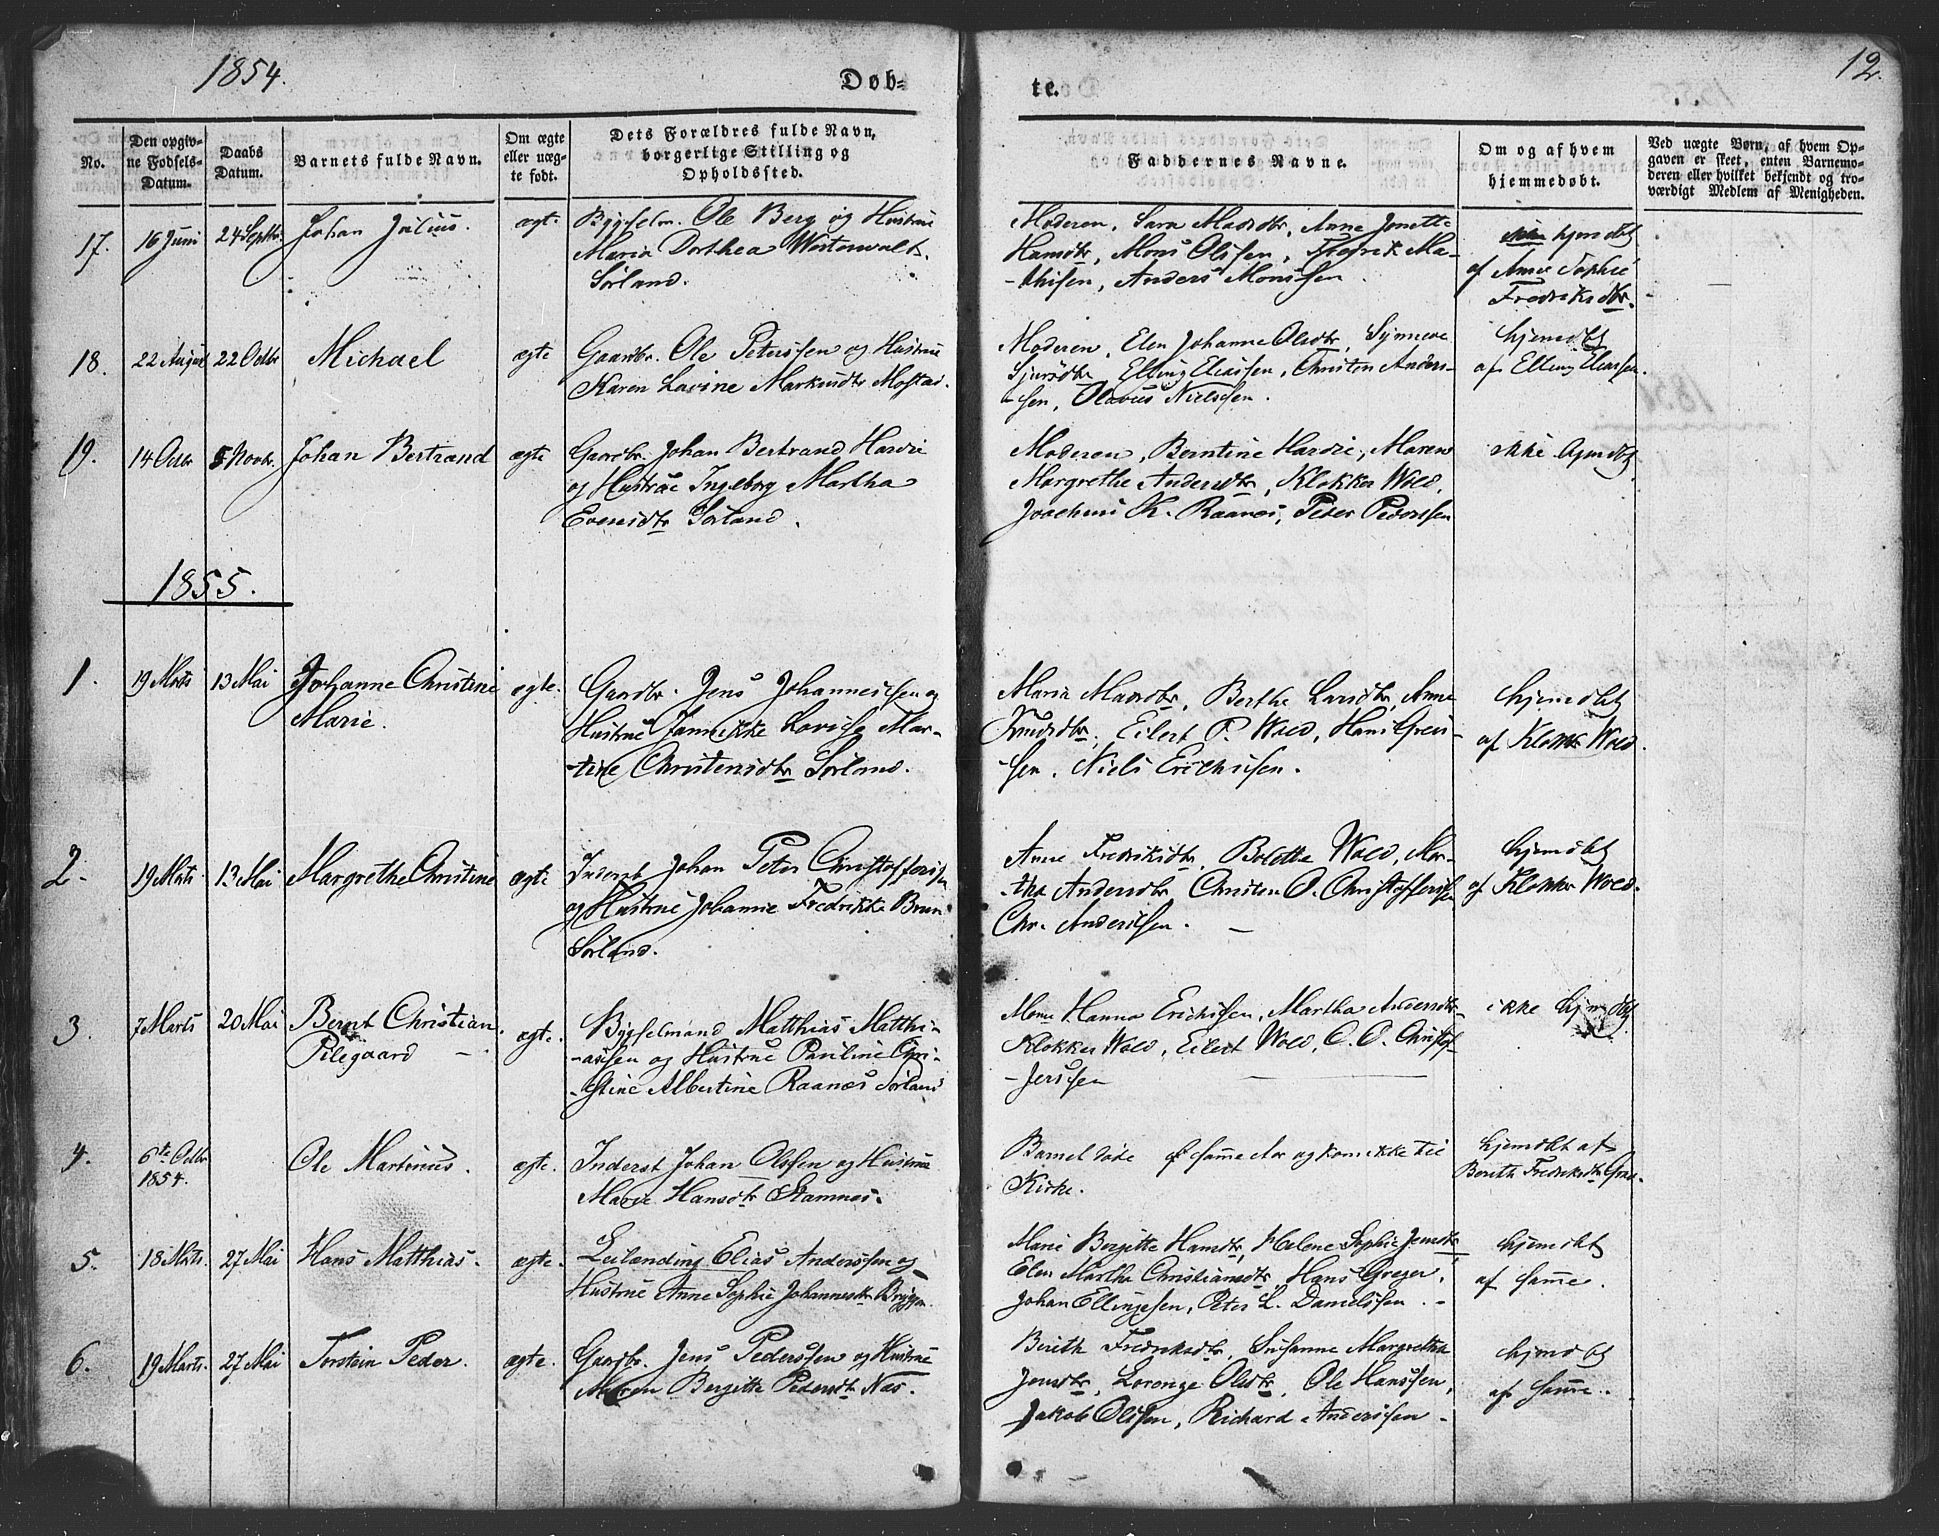 1854.
Døb-
te.
12.
No.
Den opgiv-
ne Fødsels-
Datum.
Daabs
Datum.
Barnets fulde Navn.
Om ægte
eller uæg-
te født.
Dets Forældres fulde Navn,
borgerlige Stilling og
Opholdssted.
Faddernes Navne.
Om og af hvem
hjemmedøbt.
Ved uægte Børn, af hvem Op-
gaven er skeet, enten Barnemo-
deren eller hvilket bekjendt og tro-
værdigt Medlem af Menigheden.
17. 16 Juni 24 Septbr. Johan Julius. ægte
Bygselm. Ole Berg og Hustrue
Maria Dorthea Westerwalt.
Sørland.
Moderen, Sara Madsdtr, Anne Jonette
Hansdtr, Mons Olssen, Fredrik Ma-
-thisen, Anders Monssen
hjemdøbt
af Anne Sophie
Fredriksdtr.
18. 22 August 22 Octbr Michael ægte
Gaardbr. Ole Peterssen og Hustrue
Karen Lavine Markusdtr Mostad.
Moderen, Elen Johanne Olsdtr, Synneve
Sjursdtr Elling Eliassen, Christen Anders-
-sen, Olavus Nielssen.
hjemdøbt
af Elling Eliassen.
19. 14 Octbr 5 Novbr. Johan Bertrand ægte
Gaardbr. Johan Bertrand Hardie
og Hustrue Ingeborg Martha
Evensdtr Sørland.
Moderen, Berntine Hardie, Maren
Margrethe Andersdtr, Klokker Wold,
Joachim K. Raanes, Peter Pederssen
ikke hjemdøbt
1855.
1. 19 Marts 13 Mai Johanne Christine
Marie.
ægte.
Gaardbr. Jens Johannessen og
Hustrue Jannikke Lovise Mar-
-tine Christensdtr Sørland.
Maria Madsdtr, Berthe Larsdtr, Anne
Knudsdtr, Eilert P. Wold, Hans Greis-
-sen, Niels Erichssen.
hjemdøbt
af Klokker Wold.
2. 19 Marts 13 Mai Margrethe Christine ægte
Inderst Johan Peter Christofferssen
og Hustrue Johanne Fredrikke Brun
Sørland.
Anne Fredriksdtr, Bolette Wold, Mar-
-tha Andersdtr Christen O. Christofferssen
Chr. Anderssen.
hjemdøbt
af Klokker Wold.
3. 7 Marts 20 Mai Bernt Christian
Pilegaard
ægte.
Bygselmand Matthias Matthi-
-assen og Hustrue Pauline Chri-
-stine Albertine Raanes Sørland
Hanna Erichssen, Martha Andersdtr
Klokker Wold, Eilert Wold, C. O. Christof-
-ferssen
ikke hjemdøbt
4. 6te Octbr
1854.
Ole Martinus. ægte.
Inderst Johan Olssen og Hustrue
Marie Hansdtr Stamnes.
Barnet døde samme Aar og kom ikke til
Kirke.
hjemdøbt af
Berith Fredriksdtr
5. 18 Marts. 27 Mai Hans Matthias. ægte.
Leilænding Elias Anderssen og
Hustrue Anne Sophie Johannesdtr Bryggen.
Marie Bergitte Hansdtr, Helene Sophie Jensdtr
Elen Martha Christiansdtr, Hans Greger,
Johan Ellingsen, Peter L. Danielssen.
hjemdøbt
af samme.
6. 19 Marts. 27 Mai Torstein Peder. ægte.
Gaardbr. Jens Pederssen og Hustrue
Maren Bergitte Pedersdtr Næs.
Berith Fredriksdtr, Susanne Margretha
Jensdtr, Lorenze Olsdtr, Ole Hanssen,
Jakob Olssen, Richard Anderssen
hjemdøbt
af samme.